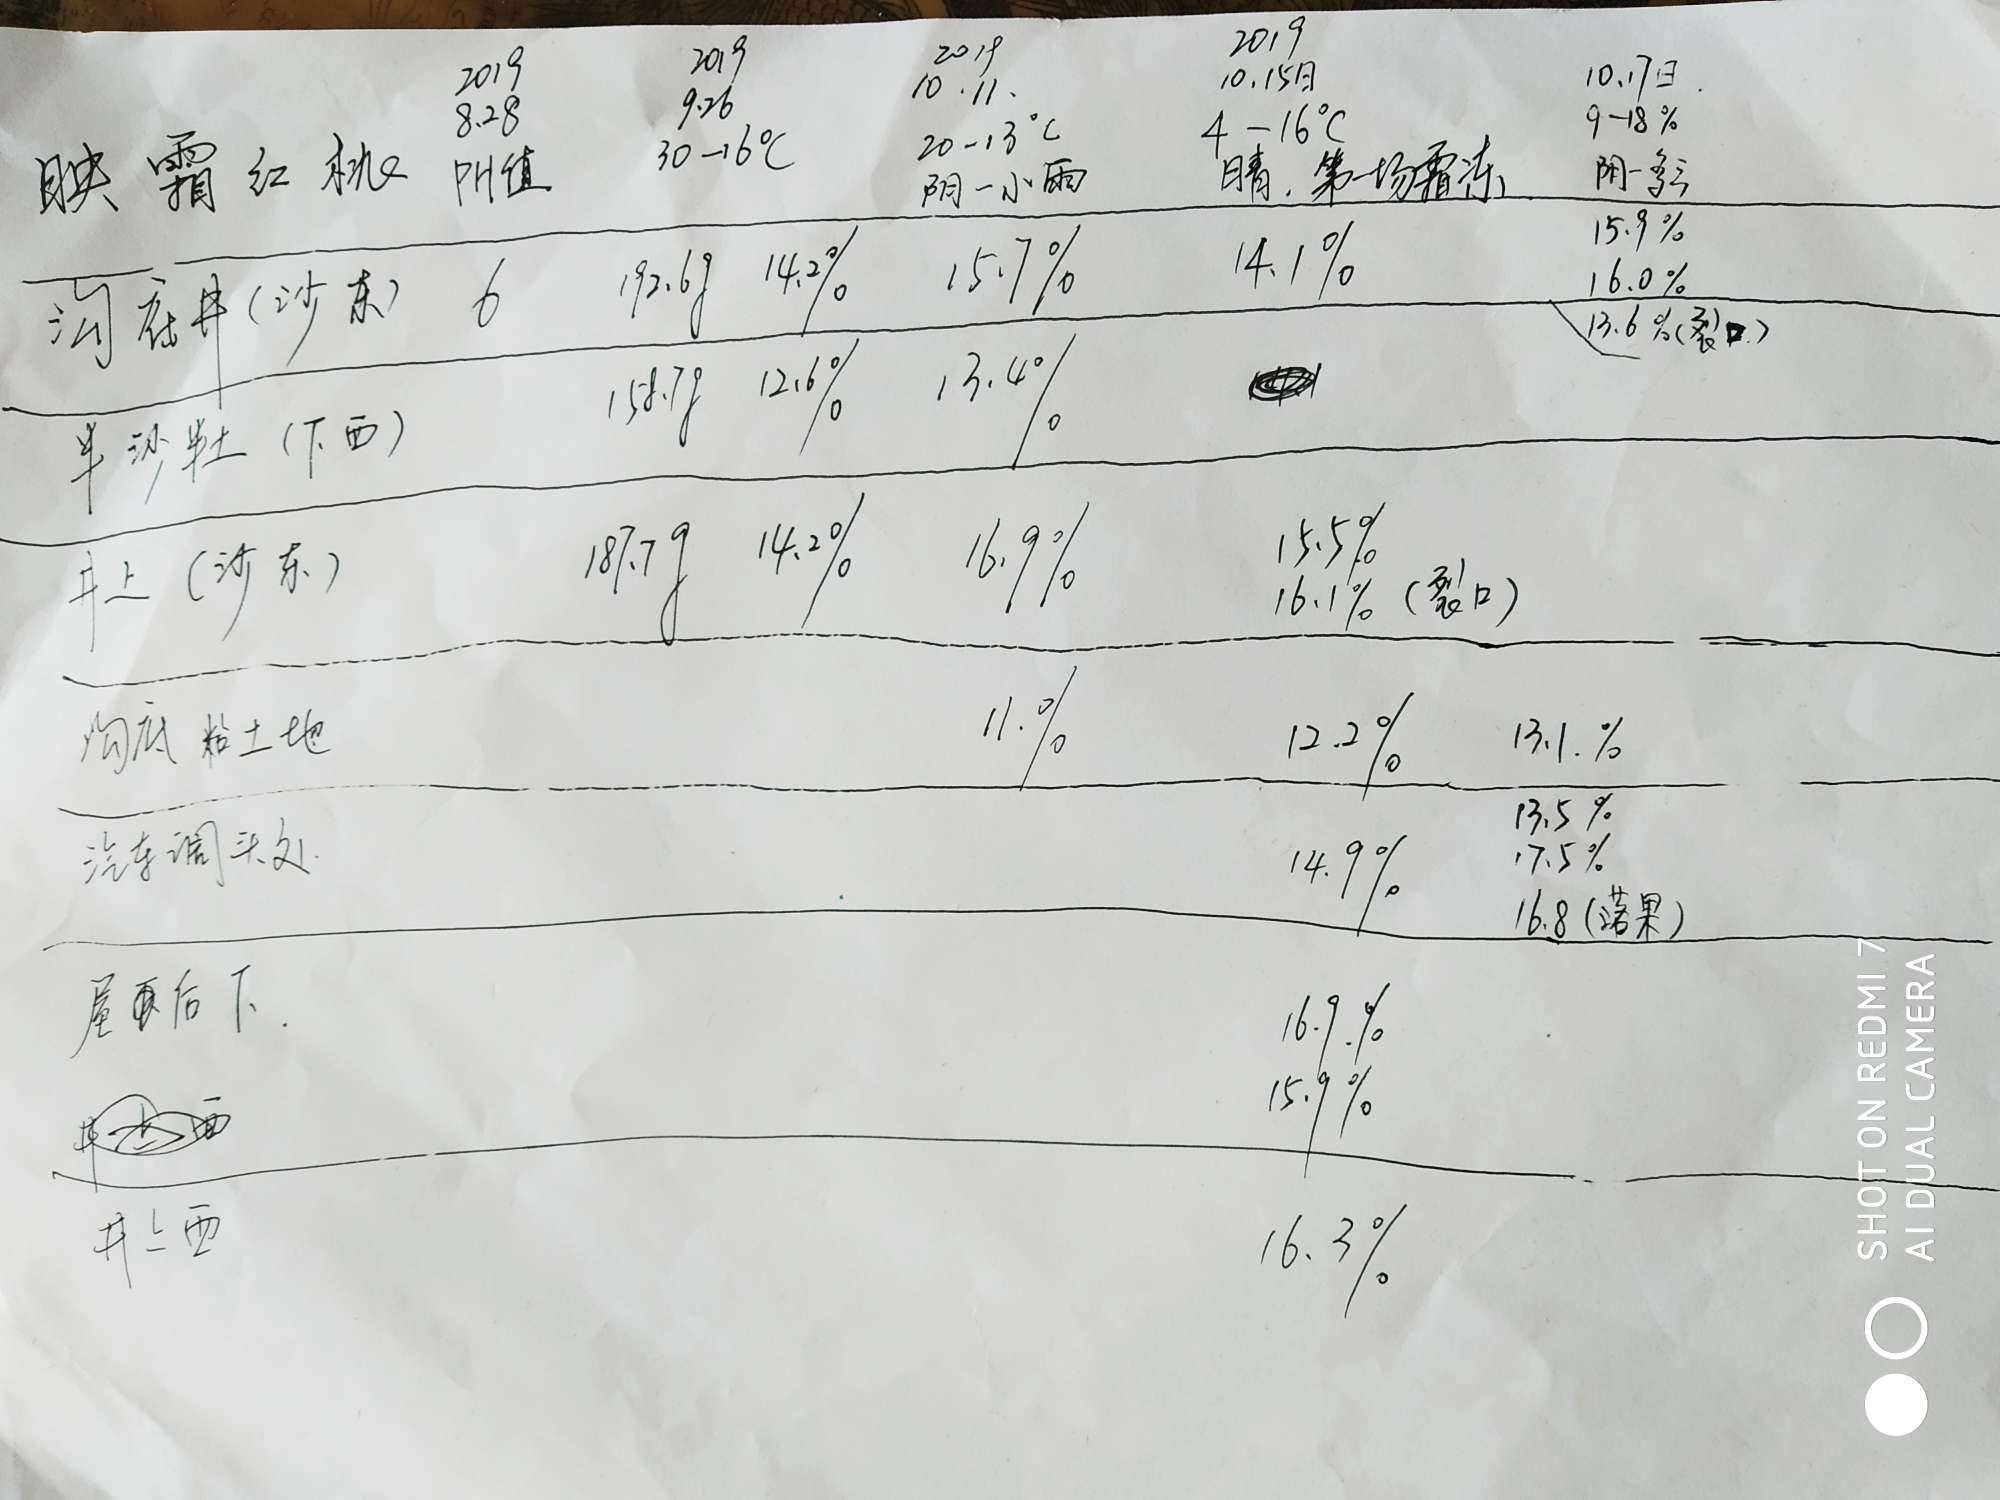 2019 2019 2019 2019
8.28 9.26 10.11. 10.15日 10.17日.
映霜红桃 PH值 30-16℃ 20-13℃ 4-16℃ 9-18%
阴-小雨 晴.第一场霜冻 阴-多云
沟底井(沙东) 6 192.6g 14.2% 15.7% 14.1% 15.9%
16.0%
13.6%(裂口.)
半沙半土(下西) 158.7g 12.6% 13.4%
井上(沙东) 187.7g 14.2% 16.9% 15.5%
16.1%(裂口)
沟底粘土地 11.% 12.2% 13.1.%
汽车调头处. 14.9% 13.5%
17.5%
16.8(落果)
屋 后下. 16.9.%
井 西 15.9%
井上西 16.3%
SHOT ON REDMI 7
AI DUAL CAMERA